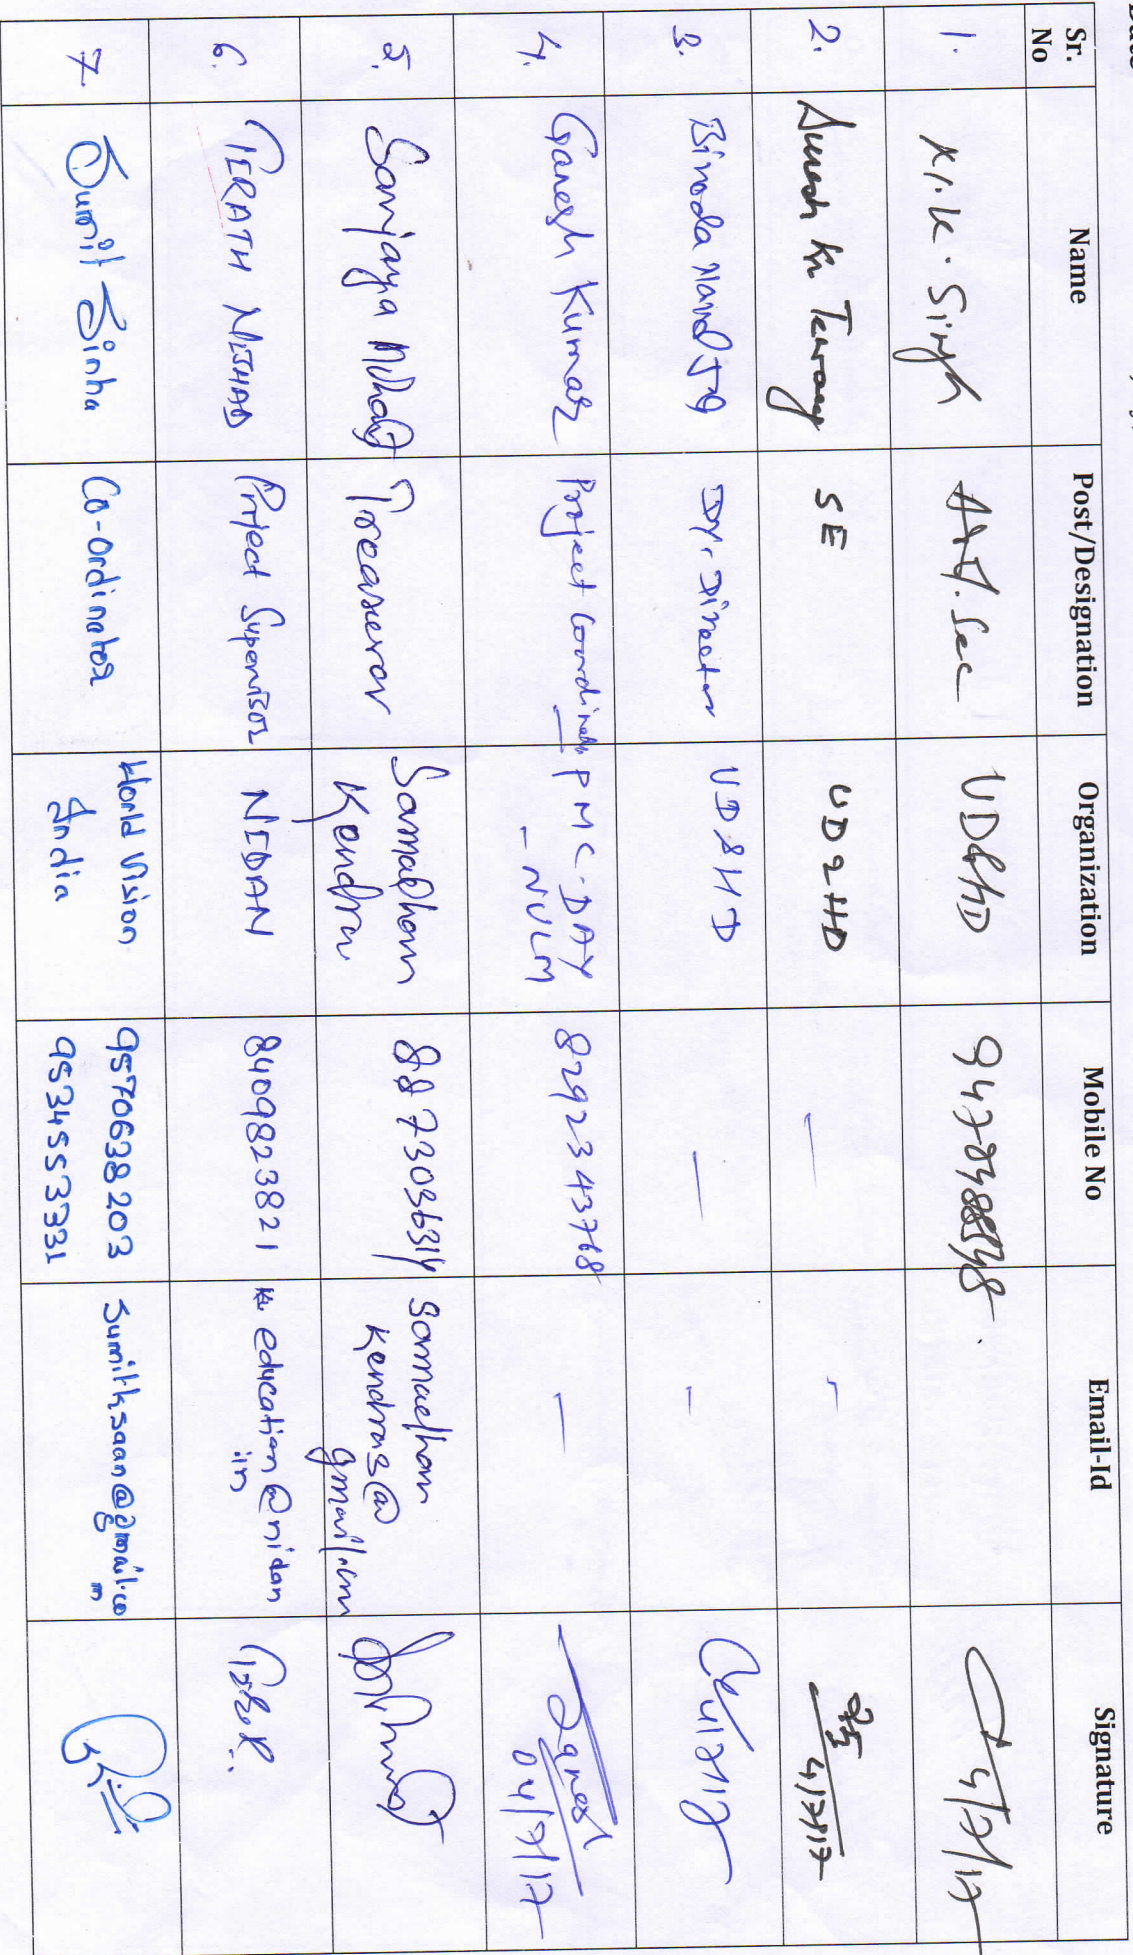 Date
Sr. No | Name | Post/Designation | Organization | Mobile No | Email-Id | Signature
1. | K.K. Singh | Add. Sec | UD&HD | | | 4/7/17
2. | Kr | SE | UD&HD | — | — | 4/7/17
3. | Binoda Nand Jha | Dy. Director | UD&HD | — | — | 4/7/17
4. | Ganesh Kumar | Project Coordinator | PMC-DAY
– NULM | 8292343768 | — | Ganesh
04/7/17
5. | Sanjaya | Treasurer | Samadhan
Kendra | 8873036314 | Samadhan
kendras@
gmail.com
6. | TERATH NISHAD | Project Supervisor | NIDAN | 8409823821 | education@nidan
.in
7. | Sumit Sinha | Co-ordinator | World Vision
India | 9570638203
9534553331 | Sumitksaan@gmail.co
m